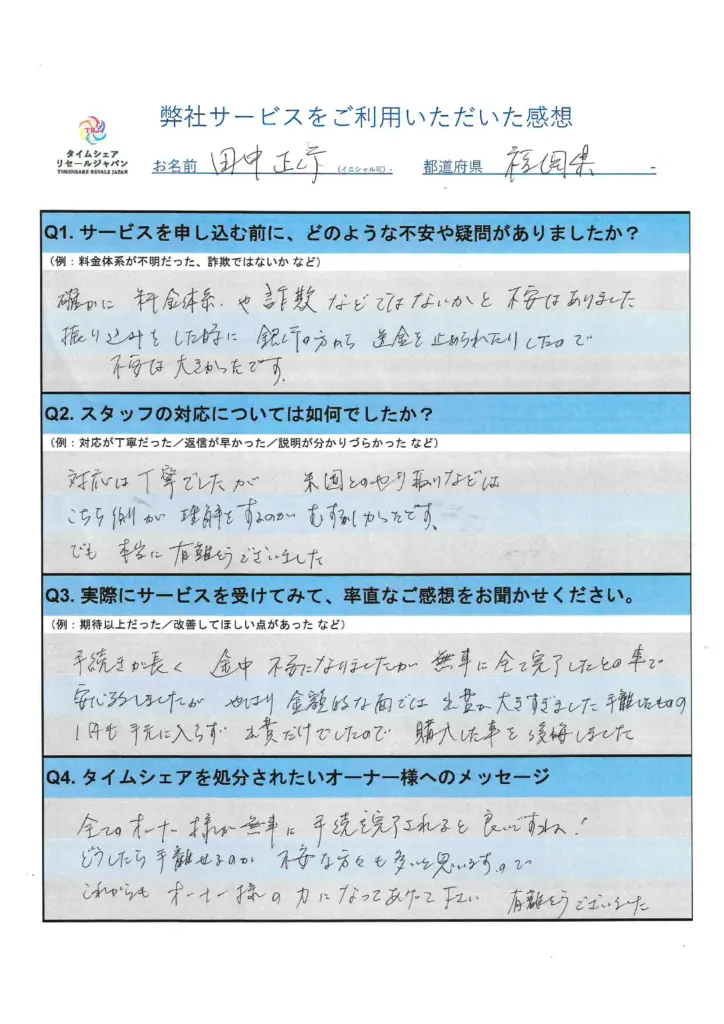 弊社サービスをご利用いただいた感想
TRJ
タイムシェア
リセールジャパン
TIMESHARE RESALE JAPAN
お名前 田中 正 (イニシャル可)- 都道府県 福岡県 -
Q1. サービスを申し込む前に、どのような不安や疑問がありましたか？
（例：料金体系が不明だった、詐欺ではないか など）
確かに 料金体系.や 詐欺 などではないかと 不安はありました
振り込みをした時に 銀行の方から 送金を止められたりしたので
不安は大きかったです.
Q2. スタッフの対応については如何でしたか？
（例：対応が丁寧だった／返信が早かった／説明が分かりづらかった など）
対応は丁寧でしたが 米国とのやり取りなどは
こちら側が 理解をするのが むずかしかったです.
でも 本当に 有難うございました
Q3. 実際にサービスを受けてみて、率直なご感想をお聞かせください。
（例：期待以上だった／改善してほしい点があった など）
手続きが長く 途中 不安になりましたが 無事に全て完了したとの事で
安心致しましたが やはり 金額的な面では 出費が大きすぎました 手離したものの
1円も手元に入らず 出費だけでしたので 購入した事を後悔しました
Q4. タイムシェアを処分されたいオーナー様へのメッセージ
全てのオーナー様が無事に 手続を完了されると 良いですね!
どうしたら手離せるのか 不安な方々も多いと思いますので
これからも オーナー様の力になってあげて下さい 有難うございました